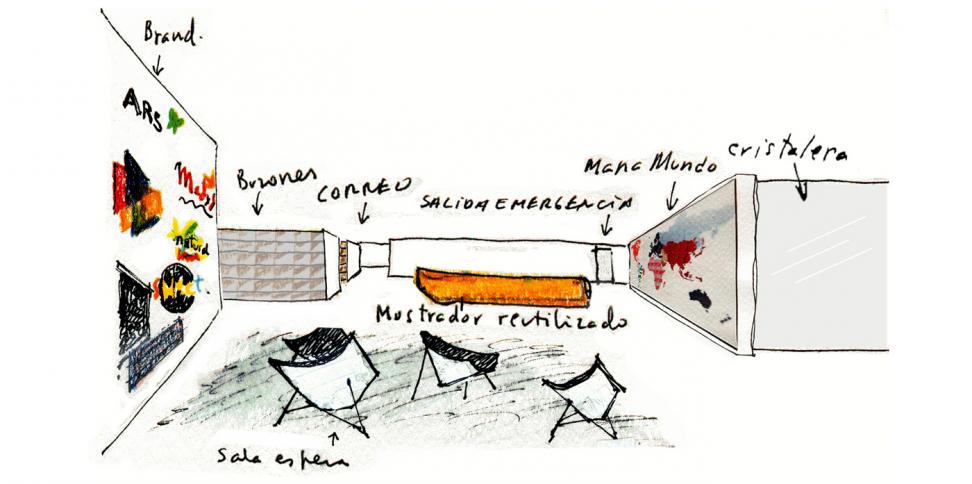 Brand.
ARS
Buzones
CORREO
SALIDA EMERGENCIA
Mapa Mundo
cristalera
Mostrador reutilizado
Sala espera